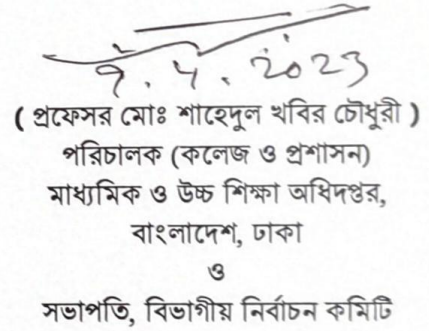 ৭.৫.২০২৩
( প্রফেসর মোঃ শাহেদুল খবির চৌধুরী )
পরিচালক (কলেজ ও প্রশাসন)
মাধ্যমিক ও উচ্চ শিক্ষা অধিদপ্তর,
বাংলাদেশ, ঢাকা
ও
সভাপতি, বিভাগীয় নির্বাচন কমিটি